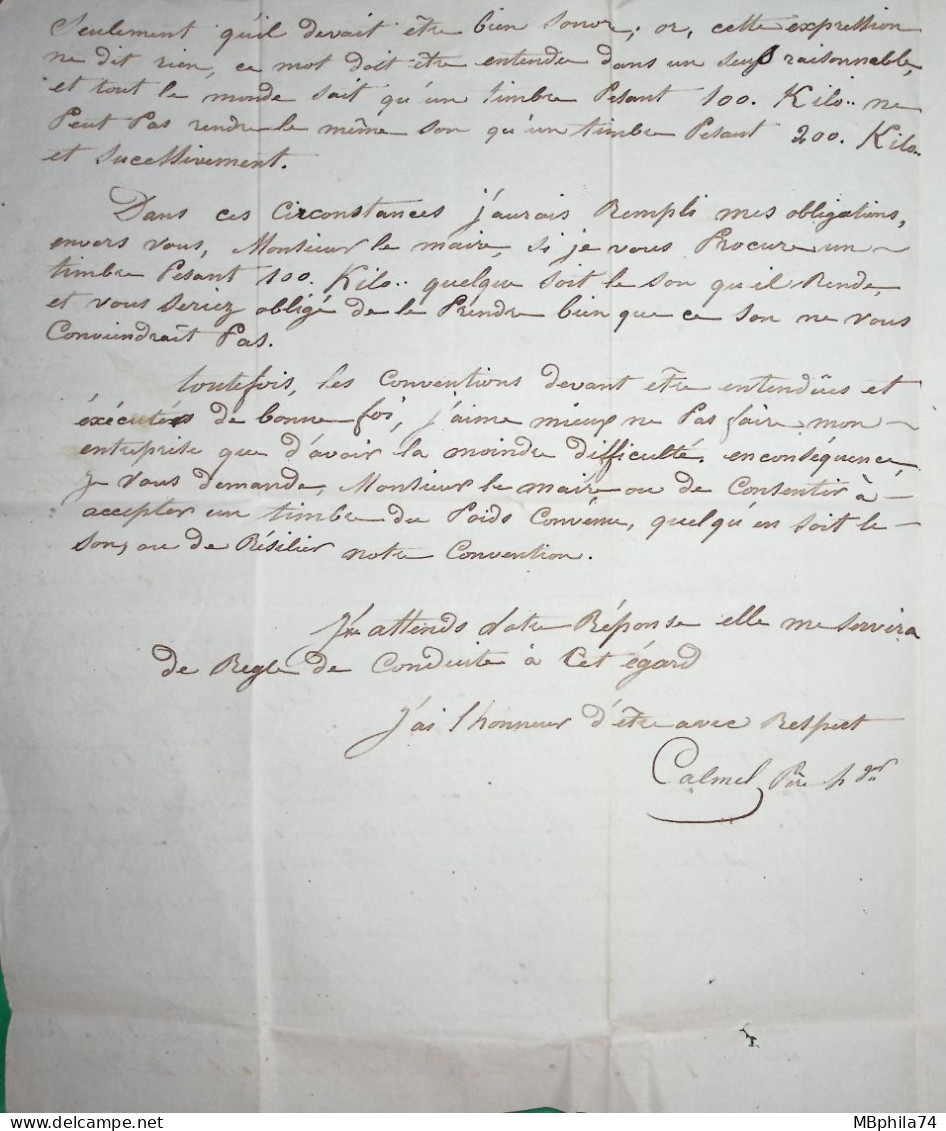 Seulement qu'il devait être bien sonor, or, cette expression
ne dit rien, ce mot doit être entendu dans un sens raisonnable,
et tout le monde sait qu'un timbre Pesant 100. Kilo.. ne
Peut Pas rendre le même son qu'un timbre Pesant 200. Kilo..
et successivement.
Dans ces Circonstances j'aurais Rempli mes obligations,
envers vous, Monsieur le maire, si je vous Procure un ~
timbre Pesant 100. Kilo.. quelque soit le son qu'il Rende,
et vous seriez obligé de le Prendre bien que ce son ne vous
Conviendrait Pas.
toutefois, les Conventions devant être entendües et
éxécutés de bonne foi, j'aime mieux ne Pas faire mon ~
entreprise que d'avoir la moindre difficulté. en conséquence,
Je vous demande, Monsieur le maire ou de Consentir à —
accepter un timbre du Poids Convenu, quelqu'en soit le —
son, ou de Résilier notre Convention.
J'en attends votre Réponse elle me servira
de Regle de Conduite à Cet égard
J'ai l'honneur d'être avec Respect
Calmel Père
MBphila74